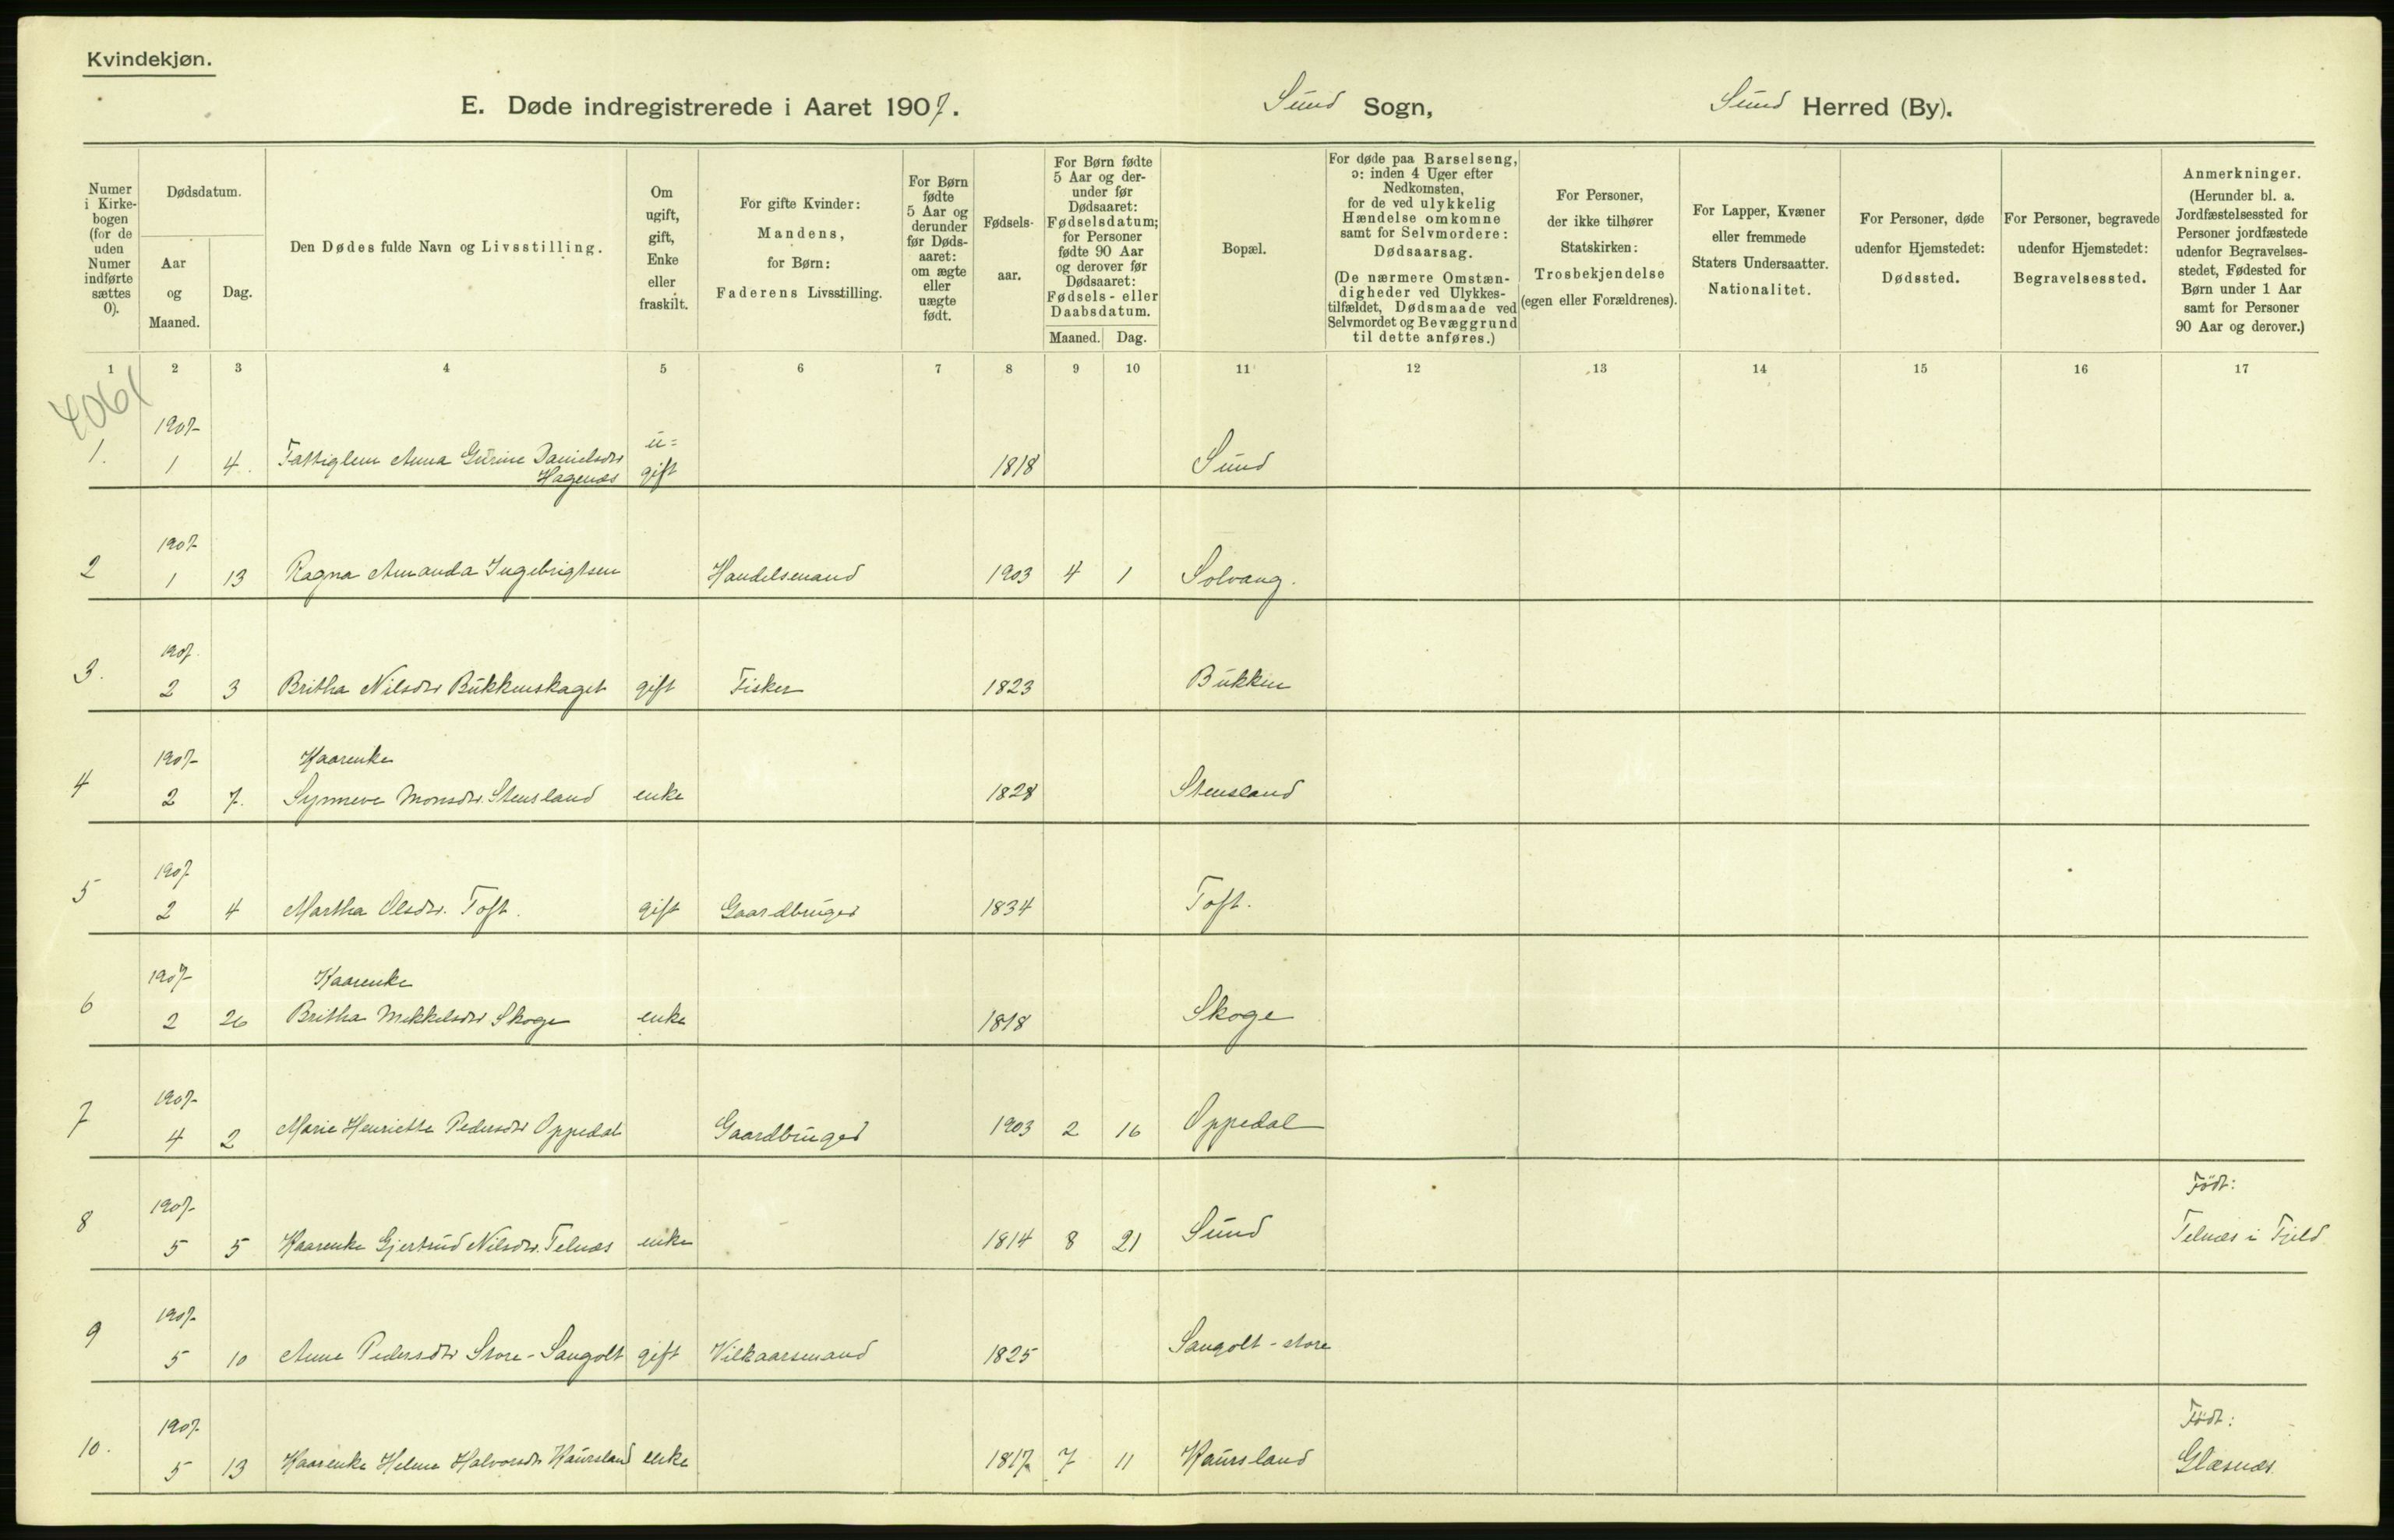 Kvindekjøn.
E. Døde indregistrerede i Aaret 1907. Sund Sogn, Sund Herred (By).
Numer i Kirkebogen (for de uden Numer indførte sættes 0).
Dødsdatum.
Aar og Maaned.
Dag.
Den Dødes fulde Navn og Livsstilling.
Om ugift, gift, Enke eller fraskilt.
For gifte Kvinder: Mandens, for Børn: Faderens Livsstilling.
For Børn fødte 5 Aar og derunder før Dødsaaret: om ægte eller uægte født.
Fødselsaar.
For Børn fødte 5 Aar og derunder før Dødsaaret: Fødselsdatum; for Personer fødte 90 Aar og derover før Dødsaaret: Fødsels- eller Daabsdatum.
Maaned. Dag.
Bopæl.
For døde paa Barselseng, ɔ: inden 4 Uger efter Nedkomsten, for de ved ulykkelig Hændelse omkomne samt for Selvmordere: Dødsaarsag. (De nærmere Omstændigheder ved Ulykkestilfældet, Dødsmaade ved Selvmordet og Bevæggrund til dette anføres.)
For Personer, der ikke tilhører Statskirken: Trosbekjendelse (egen eller Forældrenes).
For Lapper, Kvæner eller fremmede Staters Undersaatter. Nationalitet.
For Personer, døde udenfor Hjemstedet: Dødssted.
For Personer, begravede udenfor Hjemstedet: Begravelsessted.
Anmerkninger. (Herunder bl. a. Jordfæstelsessted for Personer jordfæstede udenfor Begravelsesstedet, Fødested for Børn under 1 Aar samt for Personer 90 Aar og derover.)
1 2 3 4 5 6 7 8 9 10 11 12 13 14 15 16 17
4061
1907 u=
1. 1 4. Fattiglem Anna Gurine Danielsdr Hagenæs gift 1818 Sund
1907
2 1 13 Ragna Amanda Ingebrigtsen Handelsmand 1903 4 1 Solvang.
1907.
3. 2 3 Britha Nilsdr Bukkenskaget gift Fisker 1823 Bukken
1907 Kaarenke
4 2 7. Synneve Monsdr. Stensland enke 1828 Stensland
1907
5 2 4 Martha Olsdr. Toft. gift Gaardbruger 1834 Toft.
1907 Kaarenke
6 2 26 Britha Mikkelsdr Skoge enke 1818 Skoge
1907
7 4 2 Marie Henriette Pedersdr Oppedal Gaardbruger 1903 2 16 Oppedal
1907 Født:
8 5 5 Kaarenke Gjertrud Nilsdr. Telnæs enke 1814 8 21 Sund Telnæs i Fjeld
1907
9 5 10 Anne Pedersdtr Store-Sangolt gift Vilkaarsmand 1825 Sangolt-store
1907. Født:
10. 5 13 Kaarenke Helene Halvorsdr Kausland enke 1817 7 11 Kausland Glæsnæs.